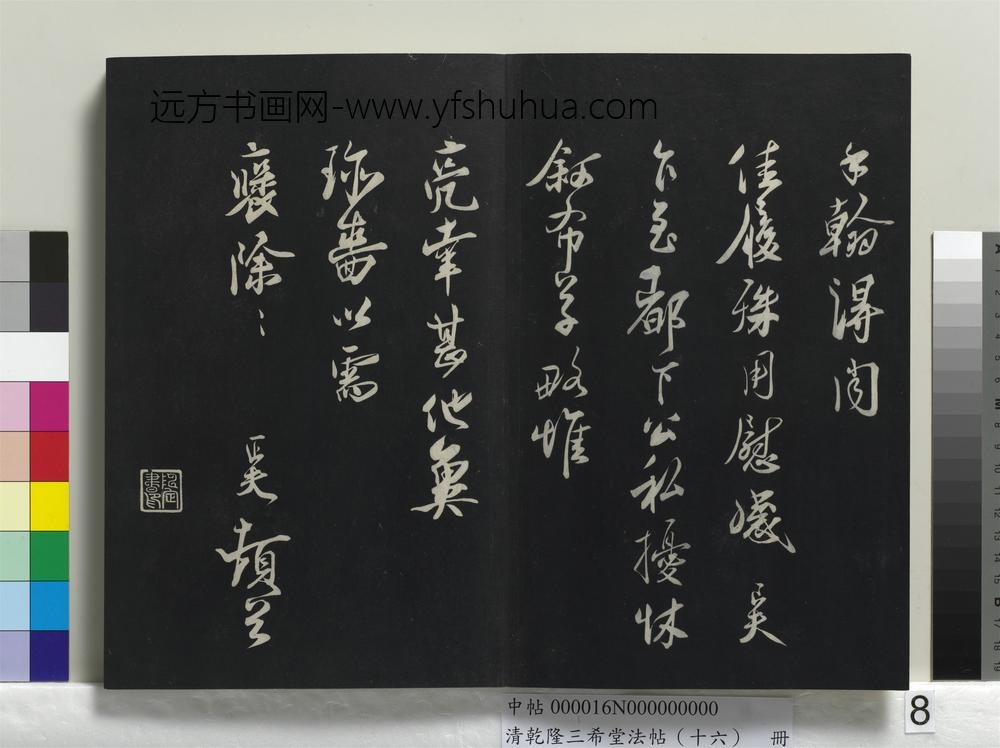 远方书画网-www.yfshuhua.com
手翰得聞
佳履殊用慰懷 昊
乍至都下公私擾
叙布草略惟
亮幸甚他冀
珍嗇以需
褒除〻 昊頓首
中帖 000016N000000000
清乾隆三希堂法帖（十六） 冊
8